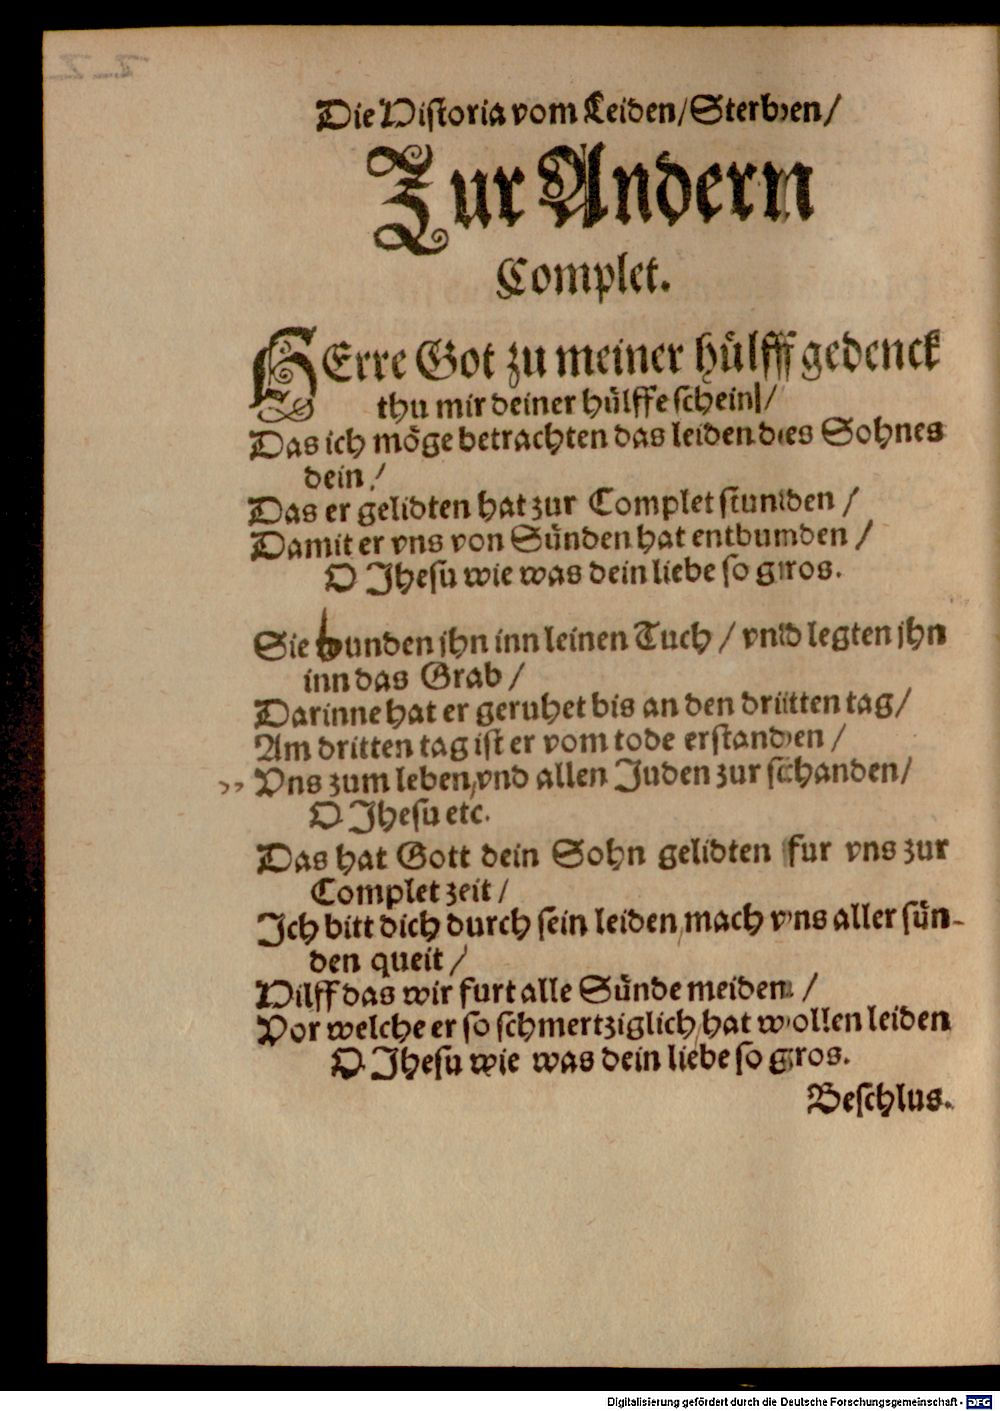 Die Historia vom Leiden/Sterben/
Zur Andern
Complet.
HErre Got zu meiner hülfff gedenck
thu mir deiner hülffe schein/
Das ich möge betrachten das leiden des Sohnes
dein /
Das er gelidten hat zur Complet stunden /
Damit er vns von Sünden hat entbunden /
O Jhesu wie was dein liebe so gros.
Sie bunden jhn inn leinen Tuch / vnd legten jhn
inn das Grab /
Darinne hat er geruhet bis an den dritten tag/
Am dritten tag ist er vom tode erstanden /
Vns zum leben, vnd allen Juden zur schanden/
O Jhesu etc.
Das hat Gott dein Sohn gelidten fur vns zur
Complet zeit /
Ich bitt dich durch sein leiden, mach vns aller sün-
den queit /
Hilff das wir furt alle Sünde meiden /
Vor welche er so schmertziglich, hat wollen leiden
O Jhesu wie was dein liebe so gros.
Beschlus.
Digitalisierung gefördert durch die Deutsche Forschungsgemeinschaft - DFG